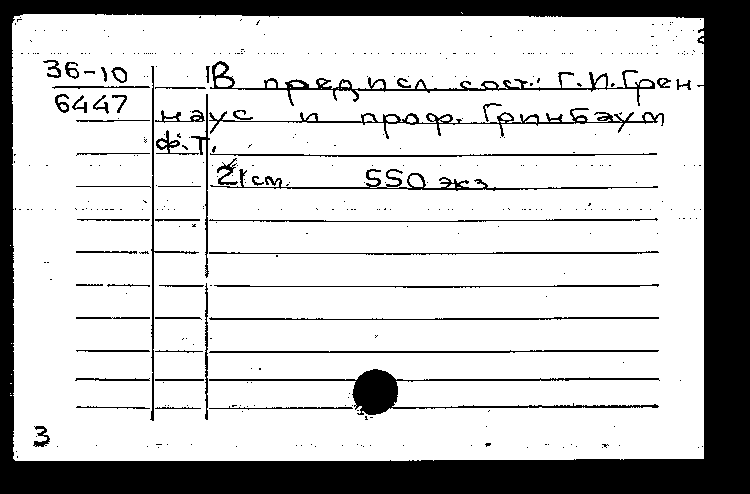 36-10 В предисл. сост.: Г.И.Грен-
6447 наус и проф. Гринбаум
Ф.Т.
21 см. 550 экз.
3